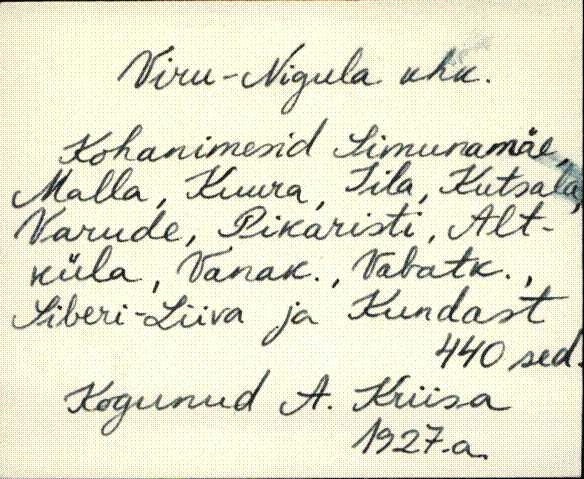 Viru-Nigula khk.
Kohanimesid Simunamäe,
Malla, Kuura, Iila, Kutsala,
Varude, Pikaristi, Alt-
küla, Vanak., Vabatk.,
Siberi-Liiva ja Kundast
440 sed.
Kogunud A. Kriisa
1927.a.